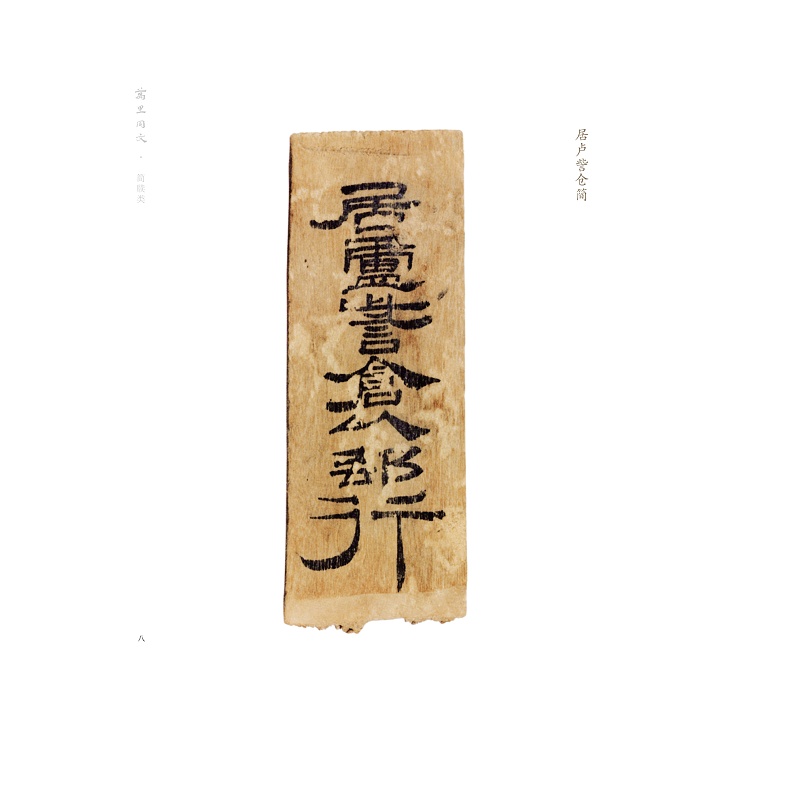 居卢訾仓简
居盧訾倉以郵行
萬里同文 · 简牍类
八